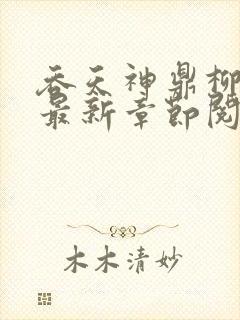 吞天神鼎柳
最新章节阅
木木清妙